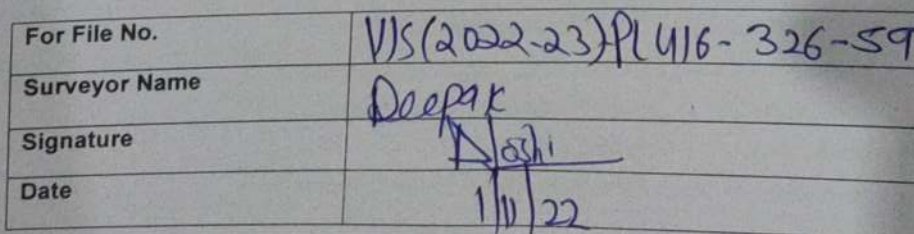 For File No. VIS(2022-23)-PL416-326-59
Surveyor Name Deepak
Signature DJoshi
Date 1/11/22